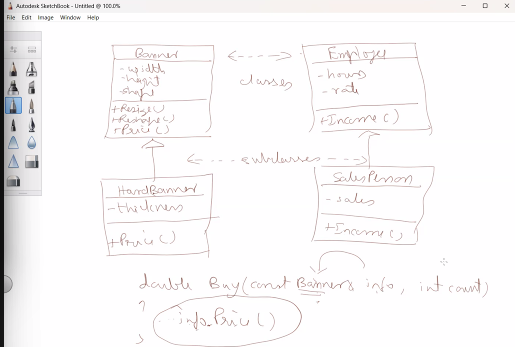 Autodesk SketchBook - Untitled @ 100.0%
File Edit Image Window Help
Banner
- width
- height
- shape
+ Resize()
+ Reshape()
+ Price()
<---->
classes
Employee
- hours
- rate
+ Income()
<---- subclasses ---->
HardBanner
- thickness
+ Price()
SalesPerson
- sales
+ Income()
double Buy(const Banner& info, int count)
{
... info.Price()
}